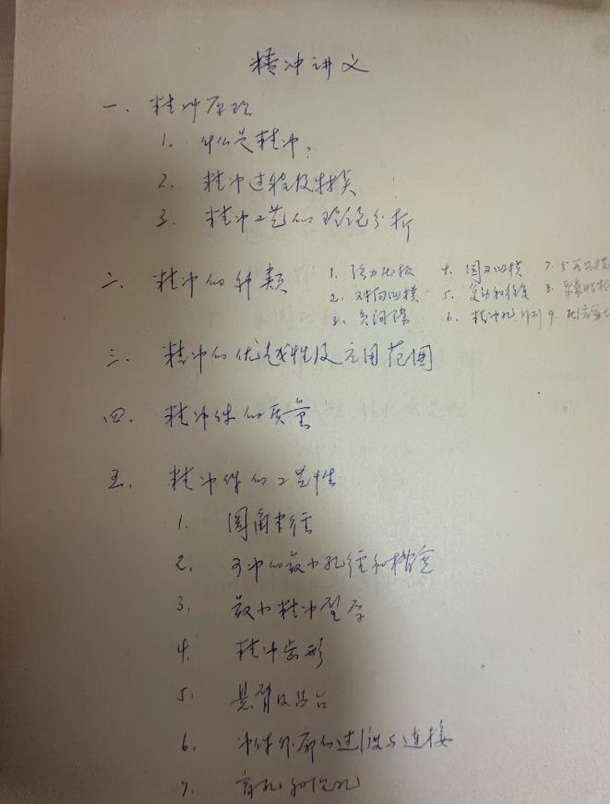 精冲讲义
一. 精冲原理
1. 什么是精冲?
2. 精冲过程及精模
3. 精冲工艺的理论分析
二. 精冲的种类 1. 强力压板 4. 圆刃凹模 7.
2. 对向凹模 5. 复动和往复 8.
3. 负间隙 6. 精冲孔 9.
三. 精冲的优越性及应用范围
四. 精冲件的质量
五. 精冲件的工艺性
1. 圆角半径
2. 可冲的最小孔径和槽宽
3. 最小精冲型
4. 精冲齿形
5. 悬臂及凸台
6. 冲件外廓的过渡与连接
7. 盲孔和沉孔